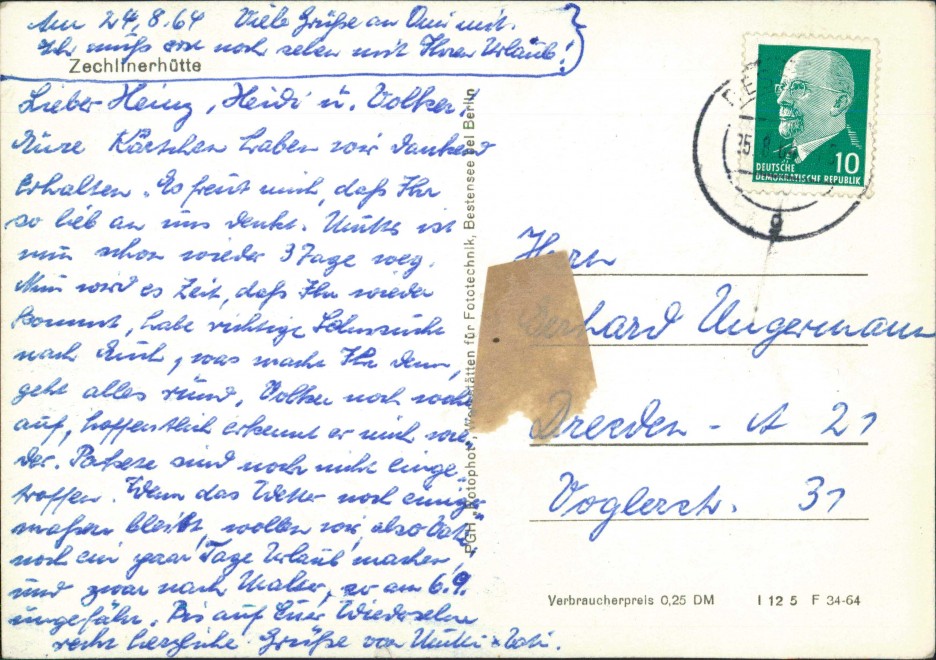 Am 24.8.64 Viele Grüße an Omi mit.
Ihr müßt erst noch sehen mit Ihren Urlaub!
Zechlinerhütte
Lieber Heinz, Heidi u. Volker!
Eure Kärtchen haben wir dankend
erhalten. Es freut mich, daß Ihr
so lieb an uns denkt. Mutti ist
nun schon wieder 3 Tage weg.
Nun wird es Zeit, daß Ihr wieder
kommt, habe richtige Sehnsucht
nach Euch, was macht Ihr denn,
geht alles rund. Volker noch wohl
auf, hoffentlich erkennt er mich wie-
der. Pakete sind noch nicht einge-
troffen. Wenn das Wetter noch einiger
maßen bleibt, wollen wir, also Vati
noch ein paar Tage Urlaub machen,
und zwar nach Malter, so am 6.9.
ungefähr. Bis auf Euer Wiedersehn
recht herzliche Grüße von Mutti + Vati.
PGH „Fotophot“, Werkstätten für Fototechnik, Bestensee bei Berlin
25.8.64
DEUTSCHE
DEMOKRATISCHE REPUBLIK
10
g
Herrn
Gerhard Ungermann
Dresden - A 21
Voglerstr. 31
Verbraucherpreis 0,25 DM I 12 5 F 34-64